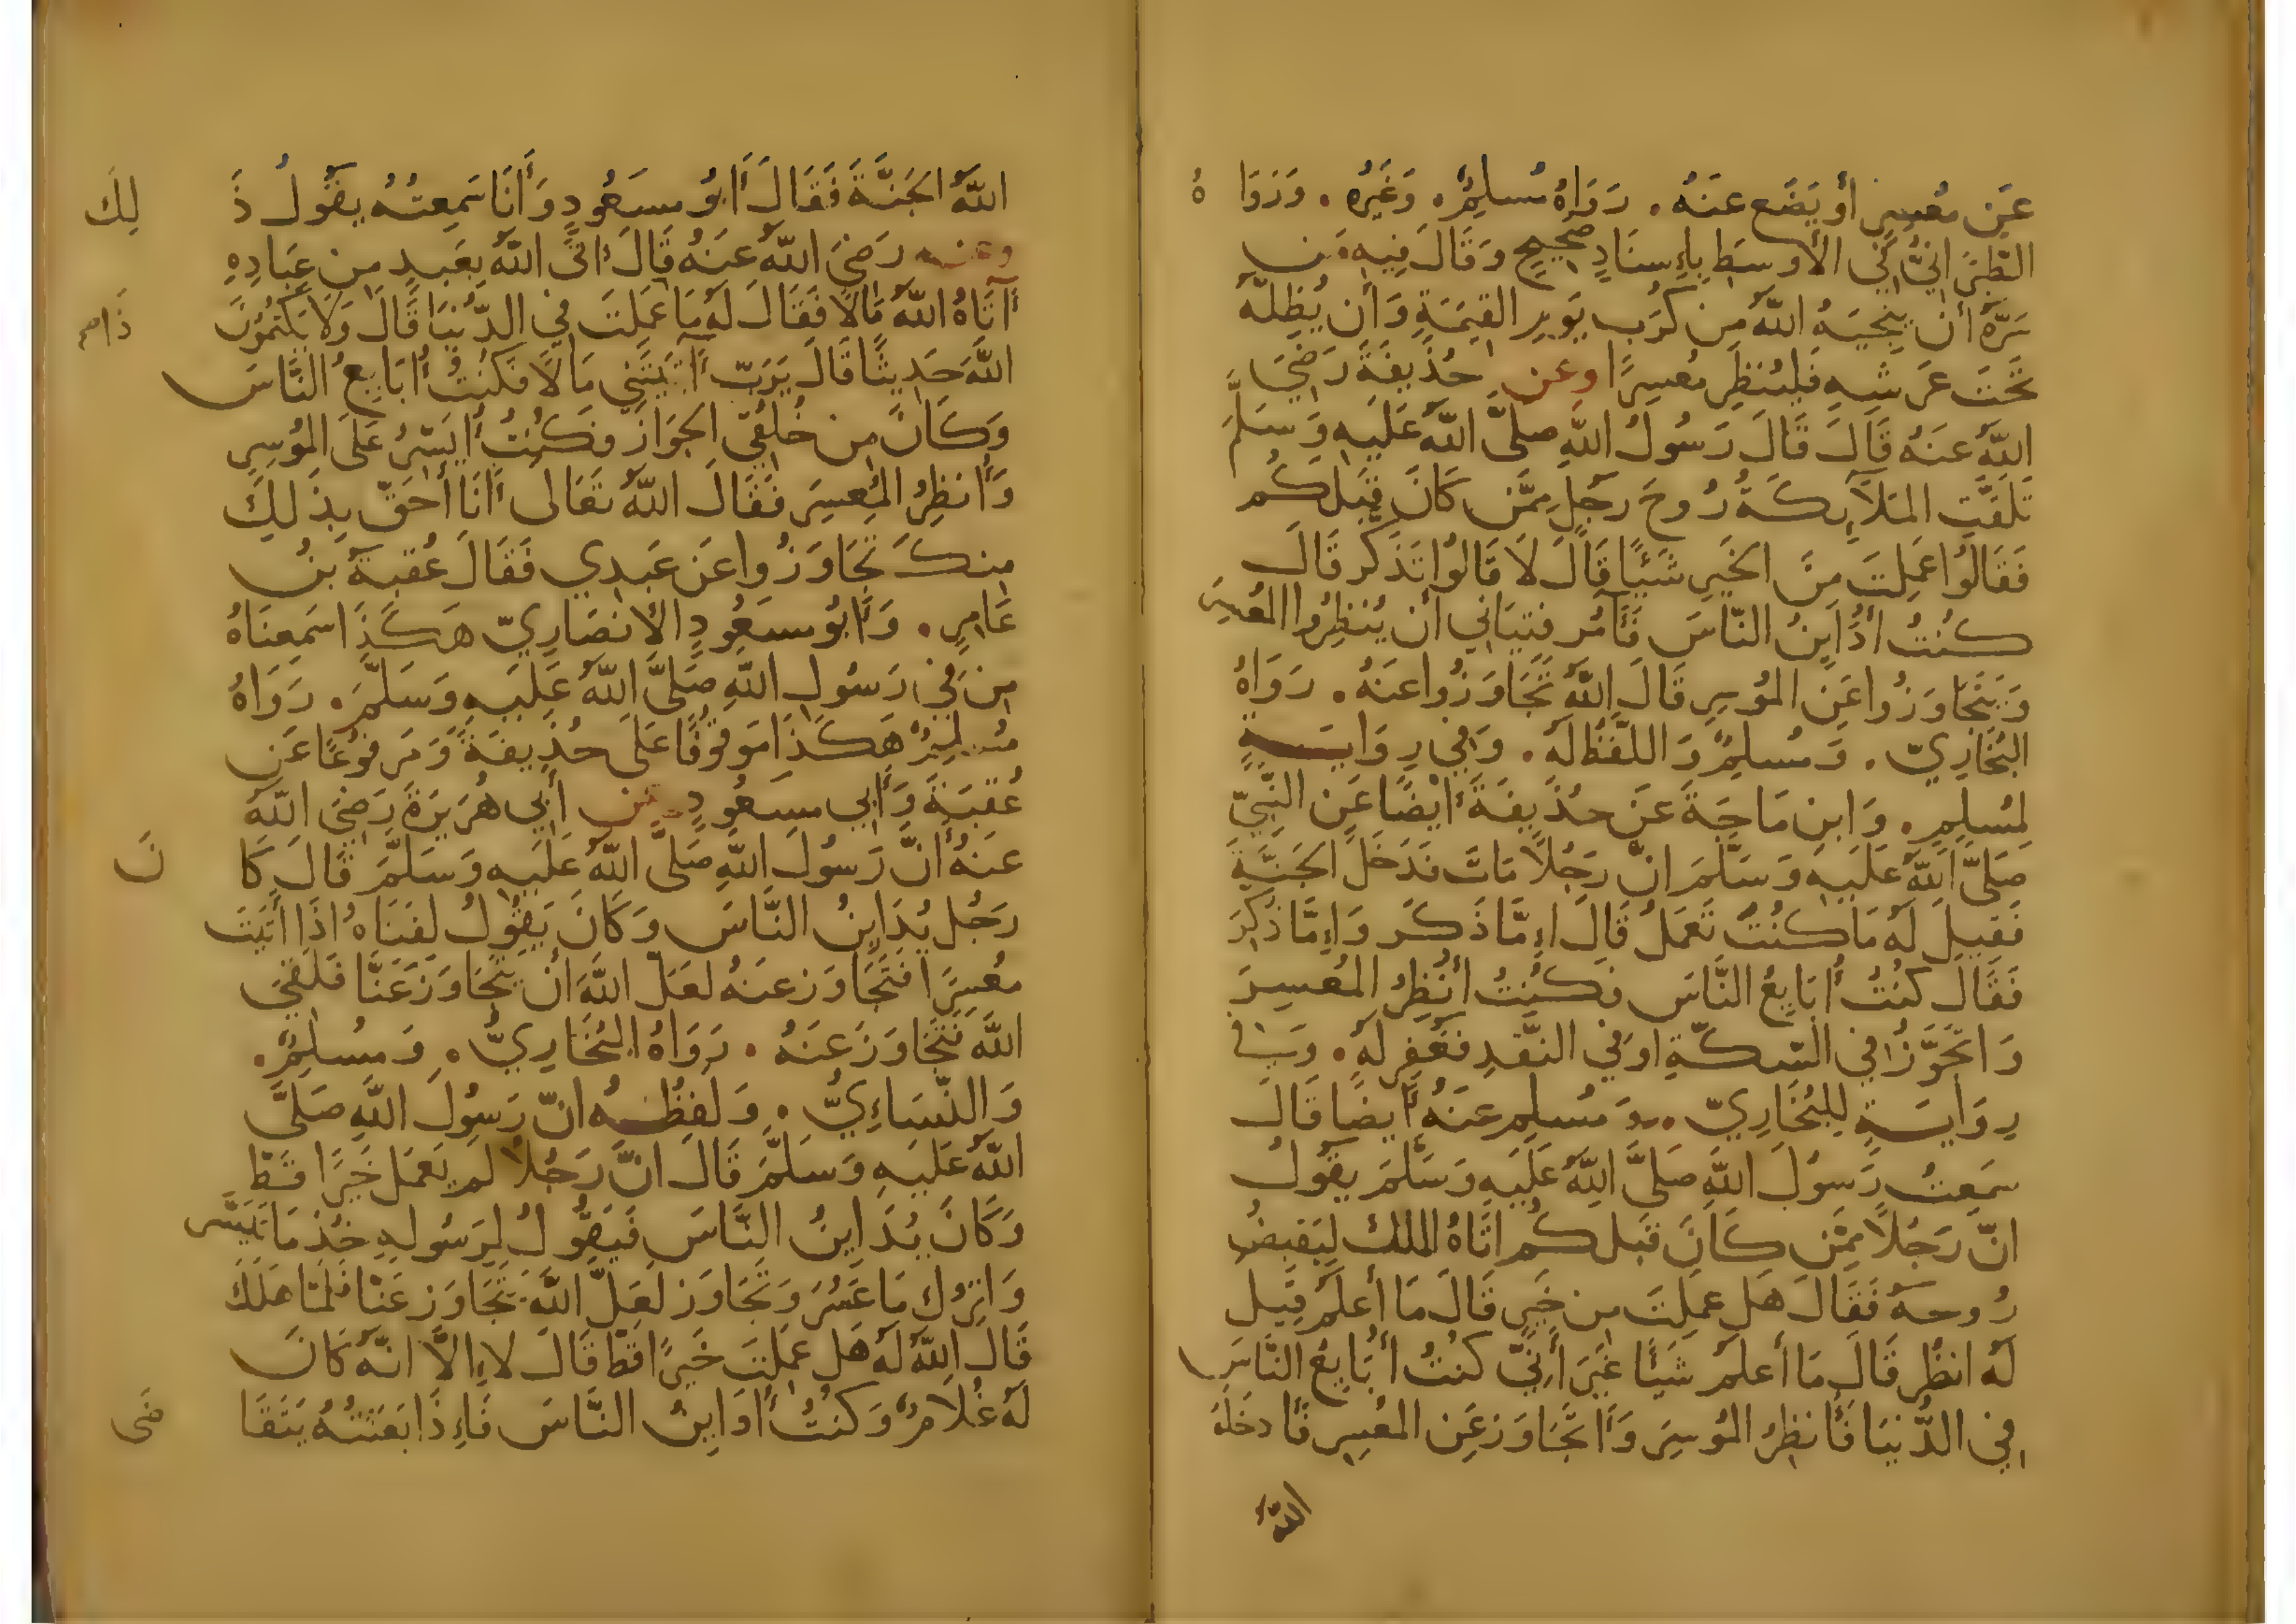 عَن مُعسِرٍ أَو يَضَع عَنهُ. رَوَاهُ مُسلِمٌ. وَغَيرُه. وَرَوَا هُ
الطَّبَرَانِيُّ فِي الأَوسَطِ بِإِسنَادٍ صَحِيحٍ وَقَالَ فِيهِ مَن
سَرَّهُ أَن يُنجِيَهُ اللهُ مِن كُرَبِ يَومِ القِيمَةِ وَأَن يُظِلَّهُ
تَحتَ عَرشِهِ فَليُنظِر مُعسِرًا وعن حُذَيفَةَ رَضِيَ
اللهُ عَنهُ قَالَ قَالَ رَسُولُ اللهِ صَلَّى اللهُ عَلَيهِ وَسَلَّمَ
تَلَقَّتِ المَلَآئِكَةُ رُوحَ رَجُلٍ مِمَّن كَانَ قَبلَكُم
فَقَالُوا عَمِلتَ مِنَ الخَيرِ شَيئًا قَالَ لَا قَالُوا تَذَكَّر قَالَ
كُنتُ أُدَايِنُ النَّاسَ فَآمُر فِتيَانِي أَن يُنظِرُوا المُعسِرَ
وَيَتَجَاوَزُوا عَنِ المُوسِرِ قَالَ اللهُ تَجَاوَزُوا عَنهُ. رَوَاهُ
البُخَارِيّ. وَمُسلِمٌ وَاللَّفظُ لَهُ. وَفِي رِوَايَةٍ
لِمُسلِمٍ. وَابنِ مَاجَةَ عَن حُذَيفَةَ أَيضًا عَنِ النَّبِيّ
صَلَّى اللهُ عَلَيهِ وَسَلَّمَ انَّ رَجُلًا مَاتَ فَدَخَلَ الجَنَّةَ
فَقِيلَ لَهُ مَا كُنتَ تَعمَلُ قَالَ اِمَّا ذَكَرَ وَاِمَّا ذُكِّرَ
فَقَالَ كُنتُ أُبَايِعُ النَّاسَ فَكُنتُ أُنظِرُ المُعسِرَ
وَاتَجَوَّزُ فِي السِّكَّةِ اوفِي النَّقدِ فَغُفِرَ لَهُ. وَفِي
رِوَايَةٍ لِلبُخَارِيّ. وَمُسلِمٍ عَنهُ أَيضًا قَالَ
سَمِعتُ رَسُولَ اللهِ صَلَّى اللهُ عَلَيهِ وَسَلَّمَ يَقُولُ
انَّ رَجُلًا مِمَّن كَانَ قَبلَكُم اتَاهُ المَلَك لِيَقبِضَ
رُوحَهُ فَقَالَ هَل عَمِلتَ مِن خَيرٍ قَالَ مَا أَعلَم قِيلَ
لَهُ انظُر قَالَ مَا أَعلَمُ شَيئًا غَيرَ أَنِّي كُنتُ أُبَايِعُ النَّاسَ
فِي الدُّنيَا فَأُنظِرُ المُوسِرَ وَأَتَجَاوَزُ عَنِ المُعسِرِ فَأَدخَلَهُ
اللهُ
اللهُ الجَنَّةَ فَقَالَ أَبُو مسَعُودٍ وَأَنَا سَمِعتُهُ يَقُولُ ذَ لِكَ
وعنه رَضِيَ اللهُ عَنهُ قَالَ أَتَى اللهُ بِعَبدٍ مِن عِبَادِهِ
آتَاهُ اللهُ مَالًا فَقَالَ لَهُ مَا عَمِلتَ فِي الدُّنيَا قَالَ وَلَا يَكتُمُونَ
اللهَ حَدِيثًا قَالَ يَرَبّ آتَيتَنِي مَالًا فَكُنتُ أُبَايِعُ النَّاسَ
وَكَانَ مِن خُلُقِي الجَوَازَ فَكُنتُ أُيَسِّرُ عَلَى المُوسِرِ
وَأُنظِرُ المُعسِرَ فَقَالَ اللهُ تَعَالَى أَنَا أَحَقّ بِذَلِكَ
مِنكَ تَجَاوَزُوا عَن عَبدِي فَقَالَ عُقبَةُ بنُ
عَامِرٍ. وَأَبُو مسَعُودٍ الأَنصَارِيّ هَكَذَا سَمِعنَاهُ
مِن فِي رَسُولِ اللهِ صَلَّى اللهُ عَلَيهِ وَسَلَّمَ. رَوَاهُ
مُسلِمٌ هَكَذَا مَوقُوفًا عَلَى حُذَيفَةَ وَمَرفُوعًا عَن
عُقبَةَ وَأَبِي مسَعُودٍ وعن أَبِي هُرَيرَةَ رَضِيَ اللهُ
عَنهُ أَنَّ رَسُولَ اللهِ صَلَّى اللهُ عَلَيهِ وَسَلَّمَ قَالَ كَا نَ
رَجُل يُدَايِنُ النَّاسَ وَكَانَ يَقُولُ لِفَتَاهُ اذَا أَتَيتَ
مُعسِرًا فَتَجَاوَز عَنهُ لَعَلّ اللهَ أَن يَتَجَاوَزَ عَنَّا فَلَقِيَ
اللهَ فَتَجَاوَزَ عَنهُ. رَوَاهُ البُخَارِيُّ. وَمُسلِمٌ.
وَالنّسَاءِيُّ. وَلَفظُهُ انّ رَسُولَ اللهِ صَلَّى
اللهُ عَلَيهِ وَسَلَّمَ قَالَ انَّ رَجُلًا لَم يَعمَل خَيرًا قَطّ
وَكَانَ يُدَايِنُ النَّاسَ فَيَقُولُ لِرَسُولِهِ خُذ مَا تَيَسَّر
وَاترُك مَا عَسُرَ وَتَجَاوَز لَعَلَّ اللهَ يَتَجَاوَز عَنّا فَلَمّا هَلَكَ
قَالَ اللهُ لَهُ هَل عَمِلتَ خَيرًا قَطّ قَالَ لَا اِلَّا انَّهُ كَانَ
لَهُ غُلَامٌ وَكُنتُ أُدَايِنُ النَّاسَ فَاِذَا بَعَثتُهُ يَتَقَا ضَى